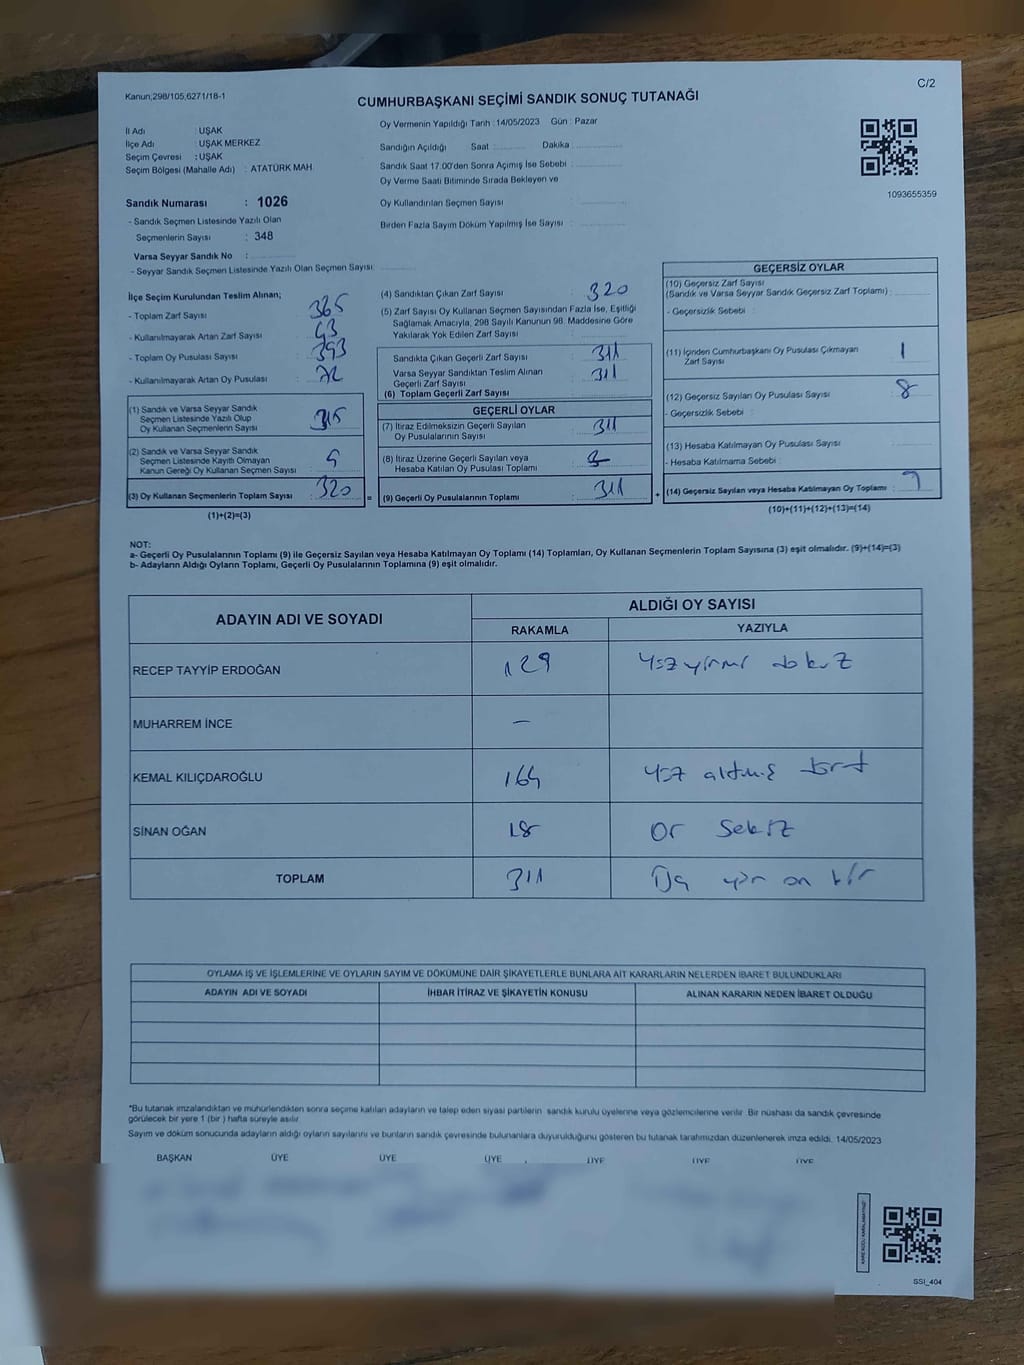 Kanun;298/105,6271/18-1
C/2
CUMHURBAŞKANI SEÇİMİ SANDIK SONUÇ TUTANAĞI
İl Adı : UŞAK
İlçe Adı : UŞAK MERKEZ
Seçim Çevresi : UŞAK
Seçim Bölgesi (Mahalle Adı) : ATATÜRK MAH
Sandık Numarası : 1026
- Sandık Seçmen Listesinde Yazılı Olan
Seçmenlerin Sayısı : 348
Varsa Seyyar Sandık No :
- Seyyar Sandık Seçmen Listesinde Yazılı Olan Seçmen Sayısı:
Oy Vermenin Yapıldığı Tarih :14/05/2023 Gün : Pazar
Sandığın Açıldığı Saat : Dakika :
Sandık Saat 17.00'den Sonra Açılmış İse Sebebi :
Oy Verme Saati Bitiminde Sırada Bekleyen ve
Oy Kullandırılan Seçmen Sayısı :
Birden Fazla Sayım Döküm Yapılmış İse Sayısı :
1093655359
İlçe Seçim Kurulundan Teslim Alınan;
- Toplam Zarf Sayısı : 365
- Kullanılmayarak Artan Zarf Sayısı : 43
- Toplam Oy Pusulası Sayısı : 393
- Kullanılmayarak Artan Oy Pusulası : 72
(1) Sandık ve Varsa Seyyar Sandık
Seçmen Listesinde Yazılı Olup
Oy Kullanan Seçmenlerin Sayısı : 315
(2) Sandık ve Varsa Seyyar Sandık
Seçmen Listesinde Kayıtlı Olmayan
Kanun Gereği Oy Kullanan Seçmen Sayısı : 5
(3) Oy Kullanan Seçmenlerin Toplam Sayısı : 320
(1)+(2)=(3)
=
(4) Sandıktan Çıkan Zarf Sayısı : 320
(5) Zarf Sayısı Oy Kullanan Seçmen Sayısından Fazla İse, Eşitliği
Sağlamak Amacıyla, 298 Sayılı Kanunun 98. Maddesine Göre
Yakılarak Yok Edilen Zarf Sayısı :
Sandıkta Çıkan Geçerli Zarf Sayısı : 311
Varsa Seyyar Sandıktan Teslim Alınan
Geçerli Zarf Sayısı : 311
(6) Toplam Geçerli Zarf Sayısı :
GEÇERLİ OYLAR
(7) İtiraz Edilmeksizin Geçerli Sayılan
Oy Pusulalarının Sayısı : 311
(8) İtiraz Üzerine Geçerli Sayılan veya
Hesaba Katılan Oy Pusulası Toplamı :
(9) Geçerli Oy Pusulalarının Toplamı : 311
+
GEÇERSİZ OYLAR
(10) Geçersiz Zarf Sayısı
(Sandık ve Varsa Seyyar Sandık Geçersiz Zarf Toplamı) :
- Geçersizlik Sebebi :
(11) İçinden Cumhurbaşkanı Oy Pusulası Çıkmayan
Zarf Sayısı : 1
(12) Geçersiz Sayılan Oy Pusulası Sayısı : 8
- Geçersizlik Sebebi :
(13) Hesaba Katılmayan Oy Pusulası Sayısı :
- Hesaba Katılmama Sebebi :
(14) Geçersiz Sayılan veya Hesaba Katılmayan Oy Toplamı : 9
(10)+(11)+(12)+(13)=(14)
NOT:
a- Geçerli Oy Pusulalarının Toplamı (9) ile Geçersiz Sayılan veya Hesaba Katılmayan Oy Toplamı (14) Toplamları, Oy Kullanan Seçmenlerin Toplam Sayısına (3) eşit olmalıdır. (9)+(14)=(3)
b- Adayların Aldığı Oyların Toplamı, Geçerli Oy Pusulalarının Toplamına (9) eşit olmalıdır.
ADAYIN ADI VE SOYADI
ALDIĞI OY SAYISI
RAKAMLA YAZIYLA
RECEP TAYYİP ERDOĞAN 129 yüz yirmi dokuz
MUHARREM İNCE —
KEMAL KILIÇDAROĞLU 164 yüz altmış dört
SİNAN OĞAN 18 on sekiz
TOPLAM 311 Üç yüz on bir
OYLAMA İŞ VE İŞLEMLERİNE VE OYLARIN SAYIM VE DÖKÜMÜNE DAİR ŞİKAYETLERLE BUNLARA AİT KARARLARIN NELERDEN İBARET BULUNDUKLARI
ADAYIN ADI VE SOYADI İHBAR İTİRAZ VE ŞİKAYETİN KONUSU ALINAN KARARIN NEDEN İBARET OLDUĞU
*Bu tutanak imzalandıktan ve mühürlendikten sonra seçime katılan adayların ve talep eden siyasi partilerin sandık kurulu üyelerine veya gözlemcilerine verilir. Bir nüshası da sandık çevresinde
görülecek bir yere 1 (bir) hafta süreyle asılır.
Sayım ve döküm sonucunda adayların aldığı oyların sayılarını ve bunların sandık çevresinde bulunanlara duyurulduğunu gösteren bu tutanak tarafımızdan düzenlenerek imza edildi. 14/05/2023
BAŞKAN ÜYE ÜYE ÜYE ÜYE ÜYE ÜYE
SSI_404